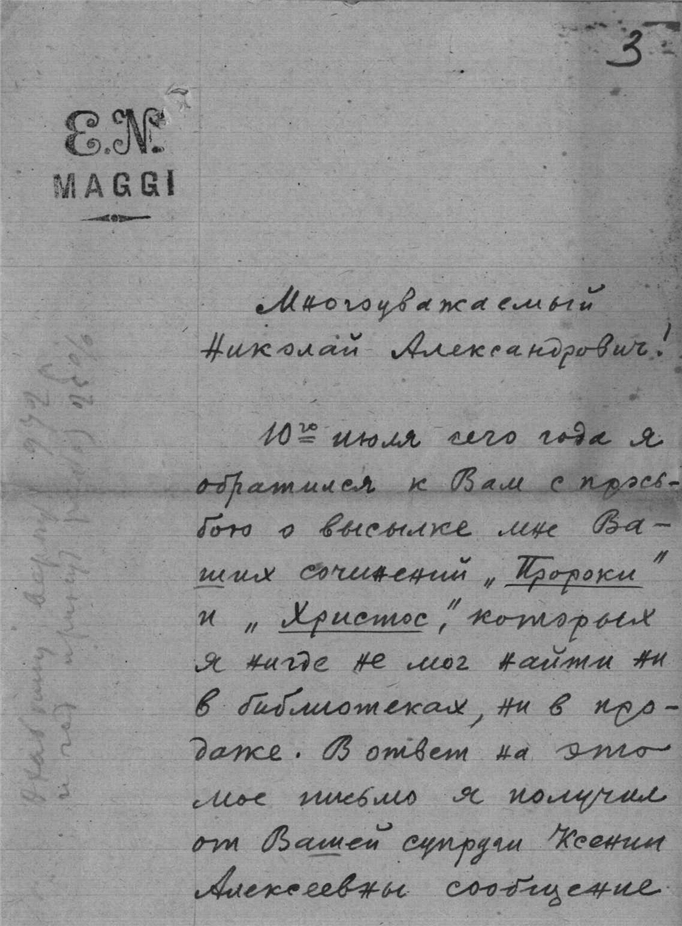 3
E.N.
MAGGI
Многоуважаемый
Николай Александрович!
10го июля сего года я
обратился к Вам с прось-
бою о высылке мне Ва-
ших сочинений „Пророки"
и „Христос", которых
я нигде не мог найти ни
в библиотеках, ни в про-
даже. В ответ на это
мое письмо я получил
от Вашей супруги Ксении
Алексеевны сообщение